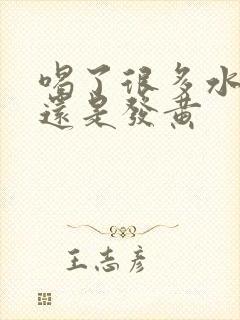 喝了很多水
還是發黃
王志彦